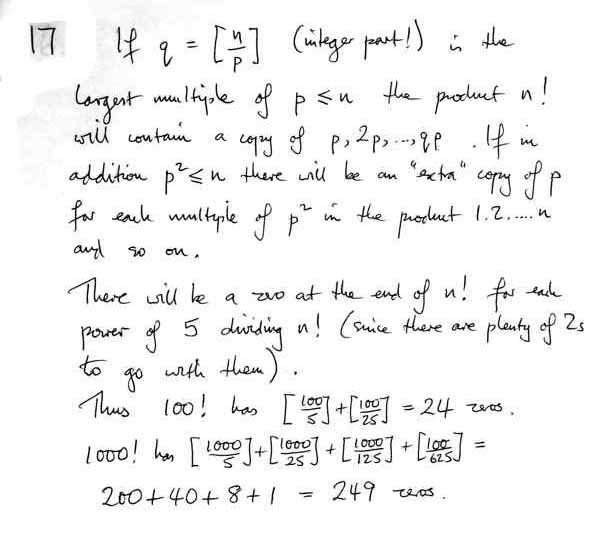 17 If q = [n/p] (integer part!) is the
largest multiple of p ≤ n the product n!
will contain a copy of p, 2p, ..., qp. If in
addition p² ≤ n there will be an "extra" copy of p
for each multiple of p² in the product 1.2.....n
and so on.
There will be a zero at the end of n! for each
power of 5 dividing n! (since there are plenty of 2s
to go with them).
Thus 100! has [100/5]+[100/25] = 24 zeros.
1000! has [1000/5]+[1000/25]+[1000/125]+[100/625] =
200+40+8+1 = 249 zeros.